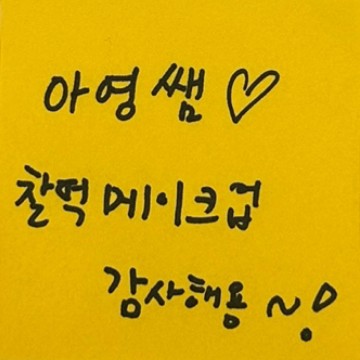 아영쌤 ♡
찰떡 메이크럽
감사해용 ~!